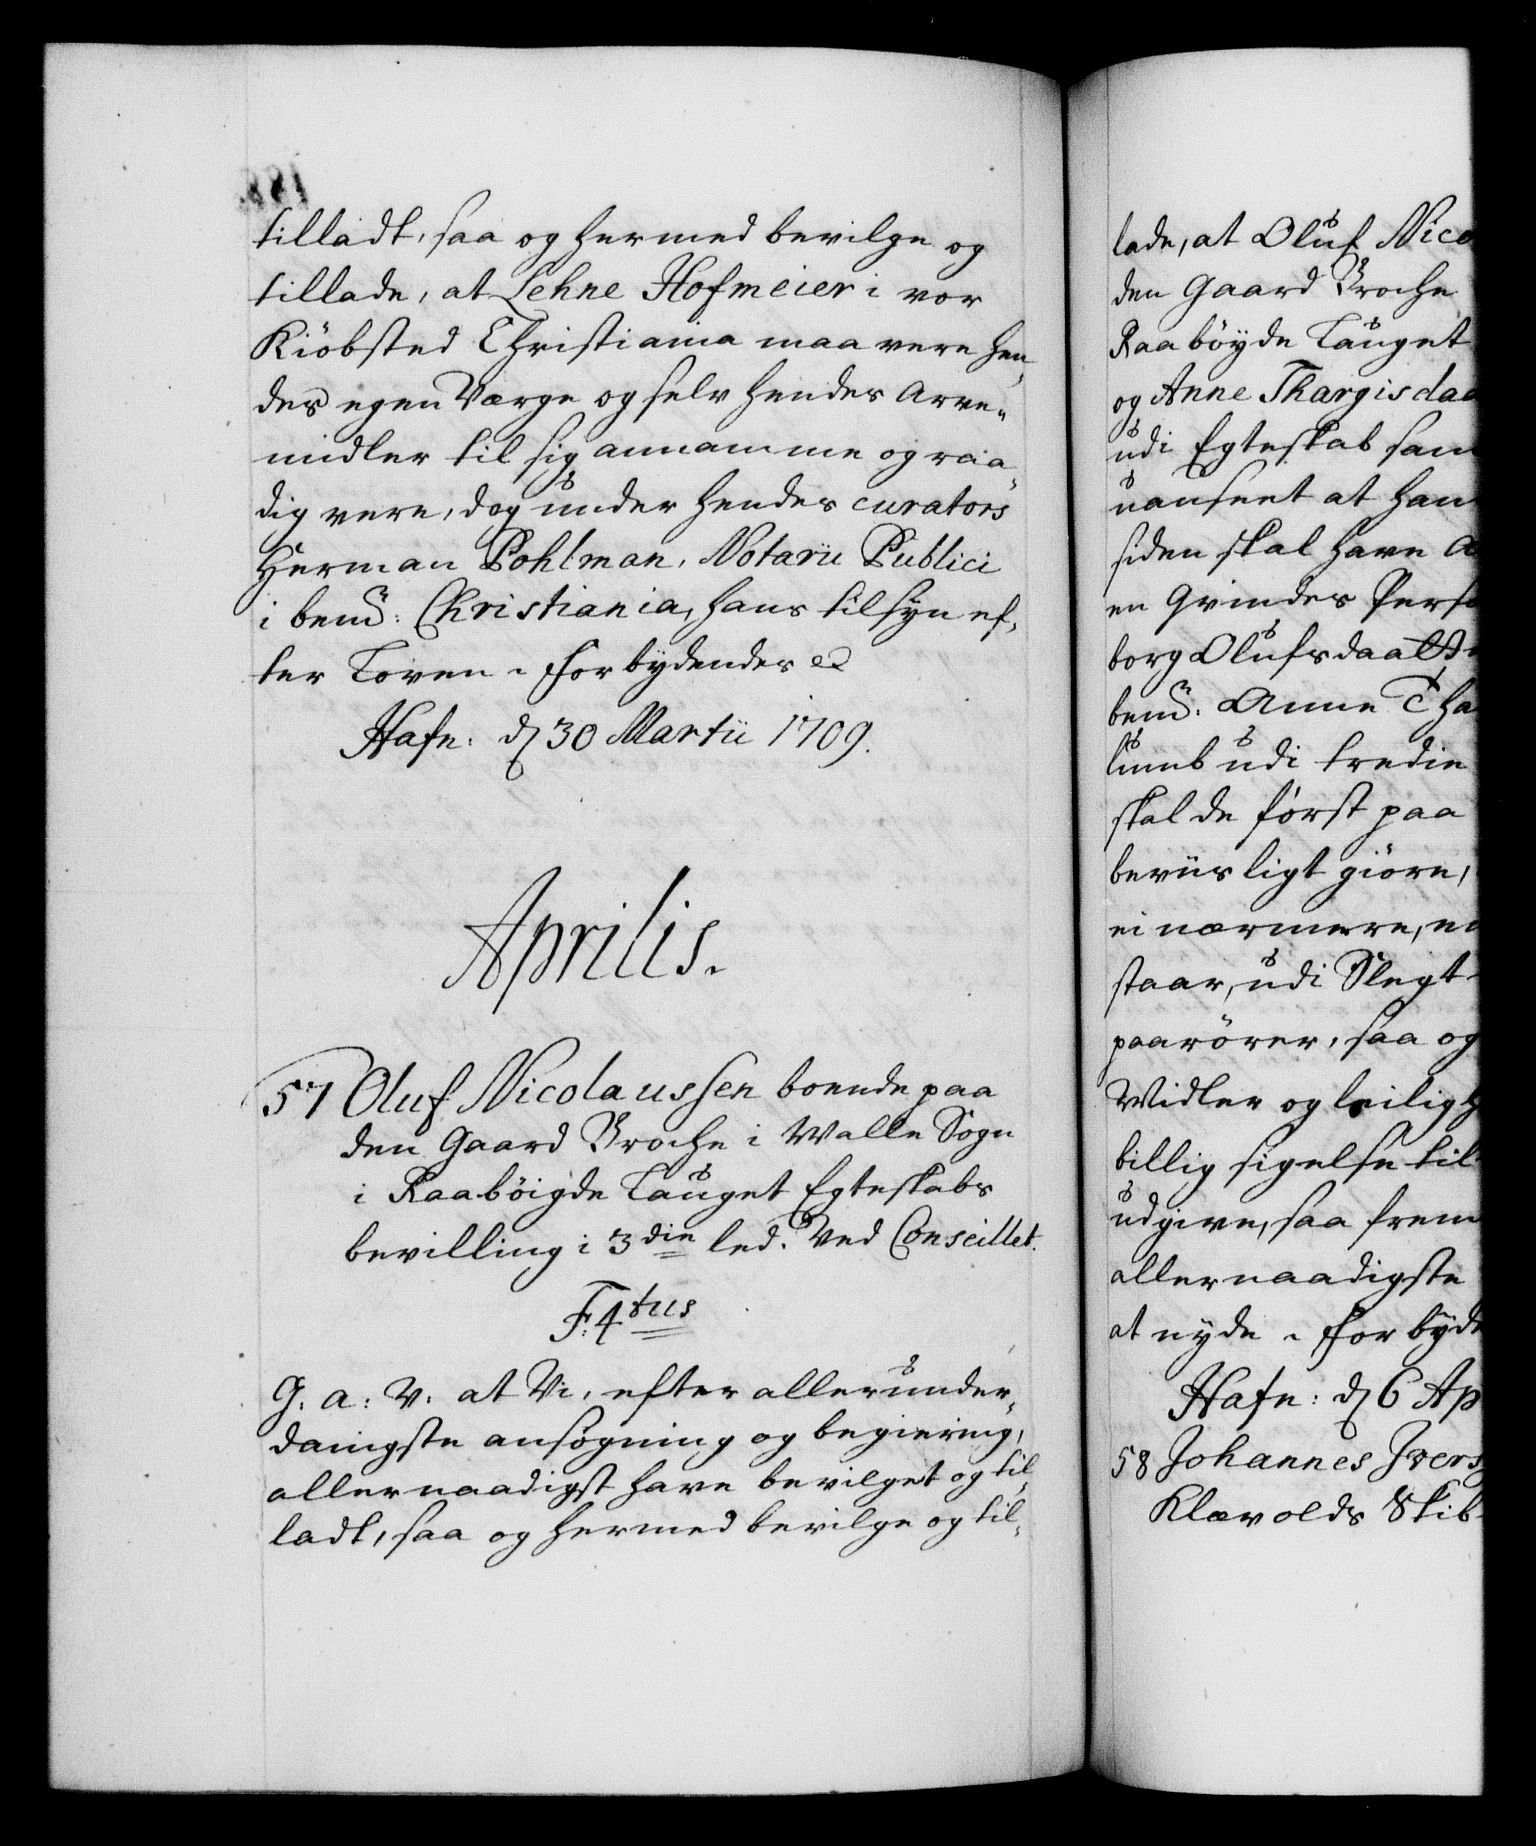 tilladt, saa og hermed bevilge og
tillade, at Lehne Hofmeier i vor
Kiöbsted Christiania maa vere hen,
des egen Værge og selv hendes Arve„
midler til sig annamme og raa„
dig vere, dog under hendes curators
Herman Pohlman, Notarii Publici
i bemd: Christiania, hans tilsyn ef,
ter Loven. forbydendes &
Hafn: d 30 Martii 1709.
Aprilis.
57 Oluf Nicolaussen boende paa
den Gaard Broche i Walle Sogn
i Raaböigde Lauget Egteskabs
bevilling i 3die led. Ved Conseillet.
F: 4tus
G: a: V: at Vi, efter allerunder„
danigste ansøgning og begiering,
allernaadigst have bevilget og til„
ladt, saa og hermed bevilge og til„
lade, at Oluf Nico
den Gaard Broche
Raaböyde Lauget
og Anne Thargisdaa
udi Egteskab sam
uanseet at han
siden skal have
en Qvindes Perso
borg Olufsdaatte
bemd: Anne Tha
lumb udi tredie
skal de först paa
beviisligt giöre,
ei nærmere, en
staar, udi Slegt
paarörer, saa og
Midler og leiligh
billig sigelse til
udgive, saa frem
allernaadigste
at nyde. forbyde
Hafn: d 6 Ap
58 Johannes Ivers
Klævolds Skib